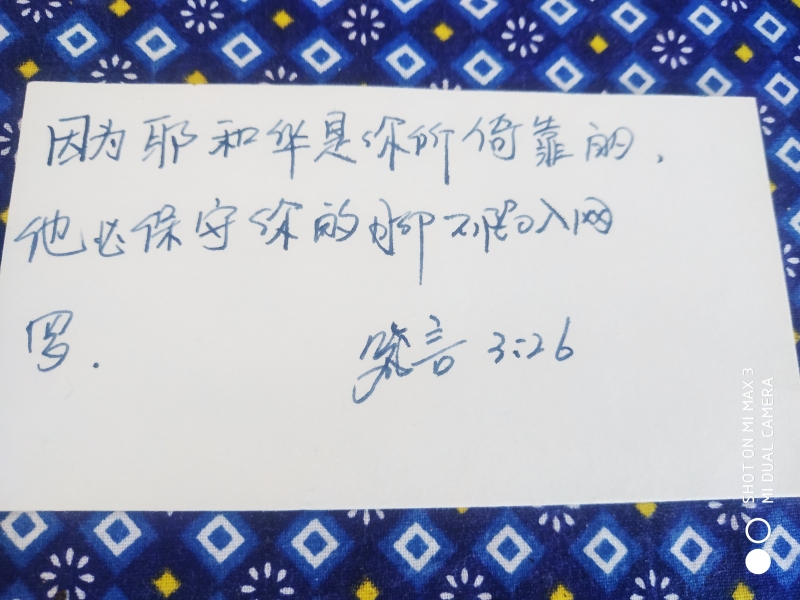 因为耶和华是你所倚靠的，
他必保守你的脚不陷入网
罗.
箴言 3:26
SHOT ON MI MAX 3
MI DUAL CAMERA